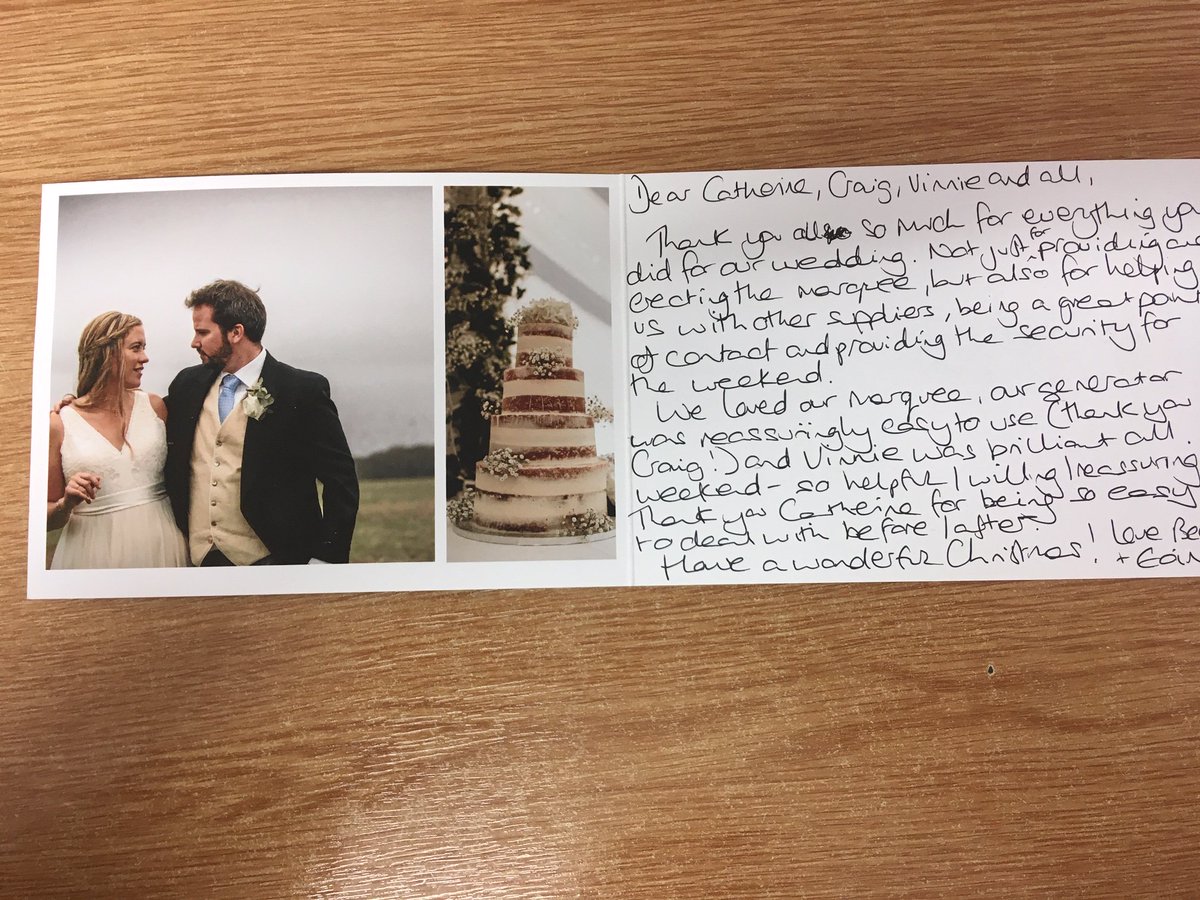 Dear Catherine, Craig, Vinnie and all,
Thank you so much for everything yo
did for our wedding. Not just for providing and
erecting the marquee, but also for helping
us with other suppliers, being a great point
of contact and providing the security for
the weekend.
We loved our marquee, our generator
was reassuringly easy to use (thank you
Craig!) and Vinnie was brilliant all
weekend - so helpful / willing / reassuring.
Thank you Catherine for being so easy
to deal with before / after
Have a wonderful Christmas! Love Be
+ Eoin